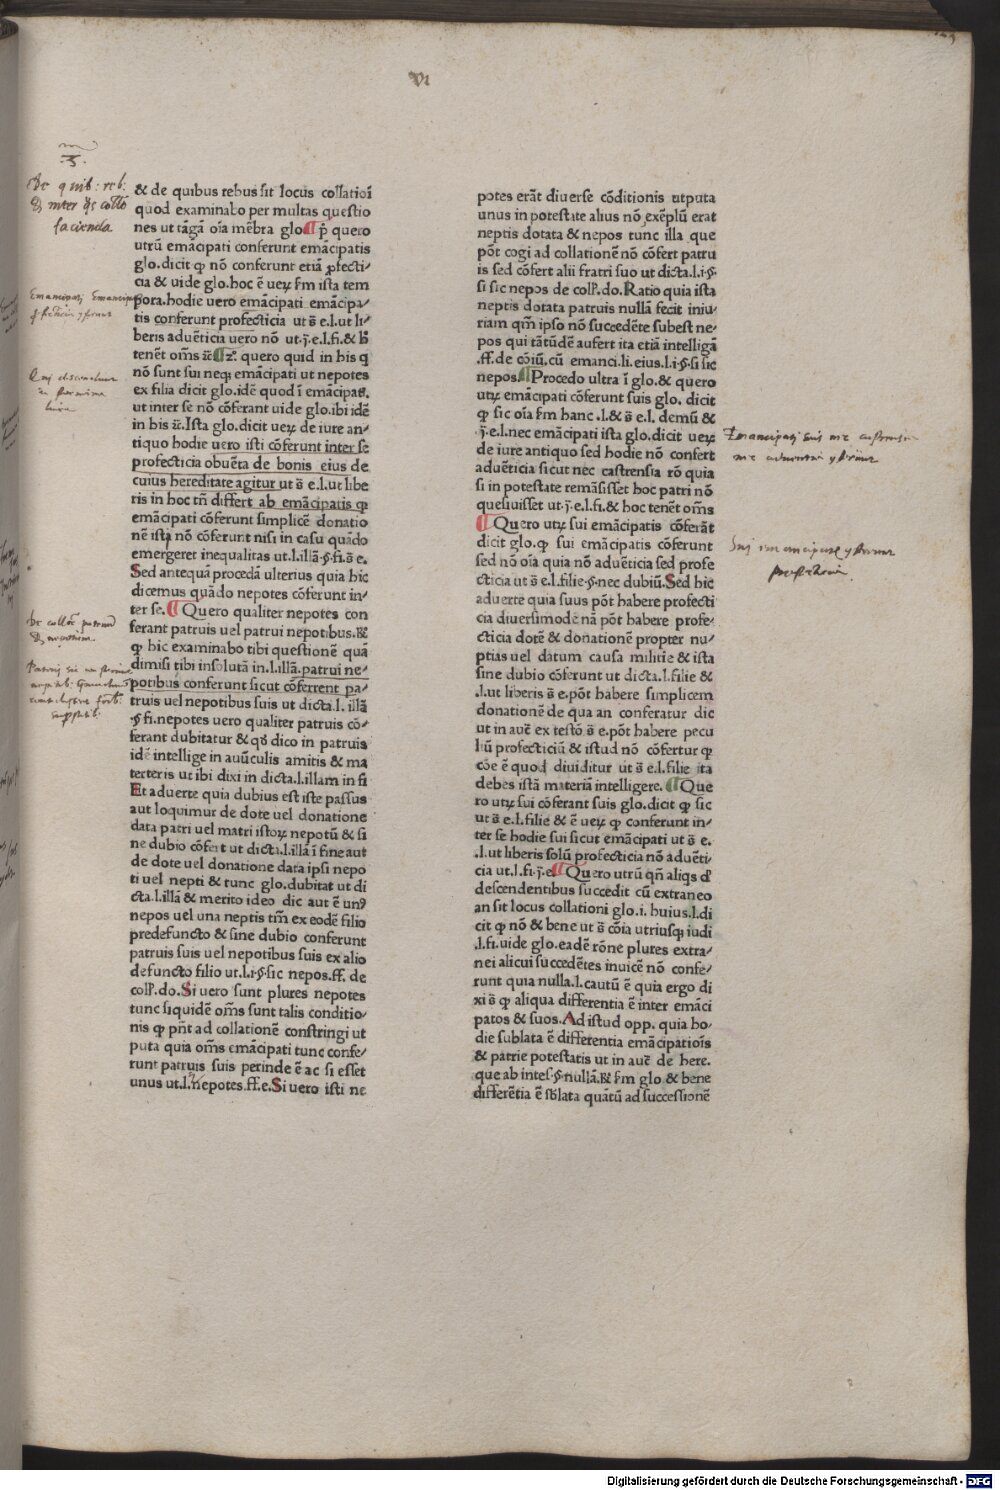 VI
& de quibus rebus sit locus collatiōi
quod examinabo per multas questio
nes ut tāgā oīa mēbra glo ¶ p̄ quero
utrū emācipati conferunt emācipatis
glo.dicit ꝙ nō conferunt etiā ꝓfecti⸗
cia & uide glo.hoc ē ueꝝ ẜm ista tem
pora.hodie uero emācipati emācipa⸗
tis conferunt profecticia ut s̄ e.l.ut li⸗
beris aduēticia uero nō ut.j̄.e.l.fi.& ħ
tenēt om̄s
quero quid in his q
nō sunt sui neqꝫ emācipati ut nepotes
ex filia dicit glo.idē quod ī emācipat.
ut inter se nō cōferant uide glo.ibi idē
in his
Ista glo.dicit ueꝝ de iure an⸗
tiquo hodie uero isti cōferunt inter se
profecticia obuēta de bonis eius de
cuius hereditate agitur ut s̄ e.l.ut libe
ris in hoc tn̄ differt ab emācipatis ꝙ
emācipati cōferunt simplicē donatio
nē istā nō cōferunt nisi in casu quādo
emergeret inequalitas ut.l.illā.§.fi.s̄ e.
Sed antequā procedā ulterius quia hic
dicemus quādo nepotes cōferunt in⸗
ter se. ¶ Quero qualiter nepotes con
ferant patruis uel patrui nepotibus.&
ꝙ hic examinabo tibi questionē quā
dimisi tibi insolutā in.l.illā.patrui ne⸗
potibus conferunt sicut cōferrent pa⸗
truis uel nepotibus suis ut dicta.l. illā
§ fi.nepotes uero qualiter patruis cō⸗
ferant dubitatur & qđ dico in patruis
idē intellige in auūculis amitis & ma
terteris ut ibi dixi in dicta.l.illam in fi
Et aduerte quia dubius est iste passus
aut loquimur de dote uel donatione
data patri uel matri istoꝝ nepotū & si
ne dubio cōfert ut dicta.l.illā ī fine aut
de dote uel donatione data ipsi nepo
ti uel nepti & tunc glo.dubitat ut di
cta.l.illā & merito ideo dic aut ē unꝰ
nepos uel una neptis tm̄ ex eodē filio
predefuncto & sine dubio conferunt
patruis suis uel nepotibus suis ex alio
defuncto filio ut.l.i.§.sic nepos.ff. de
coll.do.Si uero sunt plures nepotes
tunc siquidē om̄s sunt talis conditio⸗
nis ꝙ pn̄t ad collationē constringi ut
puta quia om̄s emācipati tunc confe⸗
runt patruis suis perinde ē ac si esset
unus ut.l.nepotes.ff.e.Si uero isti ne
potes erāt diuerse cōditionis utputa
unus in potestate alius nō exēplū erat
neptis dotata & nepos tunc illa que
pōt cogi ad collationē nō cōfert patru
is sed cōfert alii fratri suo ut dicta.l.i.§.
si sic nepos de coll.do.Ratio quia ista
neptis dotata patruis nullā fecit iniu⸗
riam qm̄ ipso nō succedēte subest ne⸗
pos qui tātūdē aufert ita etiā intelligā
.ff.de cōiū.cū emanci.li.eius.l.i.§.si sic
nepos.¶Procedo ultra ī glo.& quero
utꝝ emācipati cōferunt suis glo. dicit
ꝙ sic oīa ẜm hanc .l.& s̄ e.l. demū &
j̄.e.l.nec emācipati ista glo.dicit ueꝝ
de iure antiquo sed hodie nō confert
aduēticia sicut nec castrensia rō quia
si in potestate remāsisset hoc patri nō
quesiuisset ut.j̄.e.l.fi.& hoc tenēt om̄s
¶ Quero utꝝ sui emācipatis cōferāt
dicit glo.ꝙ sui emācipatis cōferunt
sed nō oīa quia nō aduēticia sed profe
cticia ut s̄ e.l.filie.§.nec dubiū.Sed hic
aduerte quia suus pōt habere profecti
cia diuersimodē nā pōt habere profe⸗
cticia dotē & donationē propter nu⸗
ptias uel datum causa militie & ista
sine dubio cōferunt ut dicta.l.filie &
.l.ut liberis s̄ e.pōt habere simplicem
donationē de qua an conferatur dic
ut in auc̄ ex testō.s̄ e.pōt habere pecu
liū profecticiū & istud nō cōfertur ꝙ
cōe ē quod diuiditur ut s̄ e.l.filie ita
debes istā materiā intelligere. ¶Que
ro utꝝ sui cōferant suis glo.dicit ꝙ sic
ut s̄ e.l.filie & ē ueꝝ ꝙ conferunt in⸗
ter se hodie sui sicut emācipati ut s̄ e.
.l.ut liberis solū profecticia nō aduēti⸗
cia ut.l.fi.j̄.e ¶Quero utrū qn̄ aliqs ex
descendentibus succedit cū extraneo
an sit locus collationi glo.i. huius.l.di
cit ꝙ nō & bene ut s̄ cōia utriusqꝫ iudi
.l.fi.uide glo.eadē rōne plures extra⸗
nei alicui succedētes inuicē nō confe⸗
runt quia nulla.l.cautū ē quia ergo di
xi s̄ ꝙ aliqua differentia ē inter emāci
patos & suos.Ad istud opp. quia ho⸗
die sublata ē differentia emācipatiōis
& patrie potestatis ut in auc̄ de here.
que ab intes.§.nullā.& ẜm glo & bene
differētia ē sublata quātū ad successionē
De quib: reb:
facienda
Digitalisierung gefördert durch die Deutsche Forschungsgemeinschaft - DFG